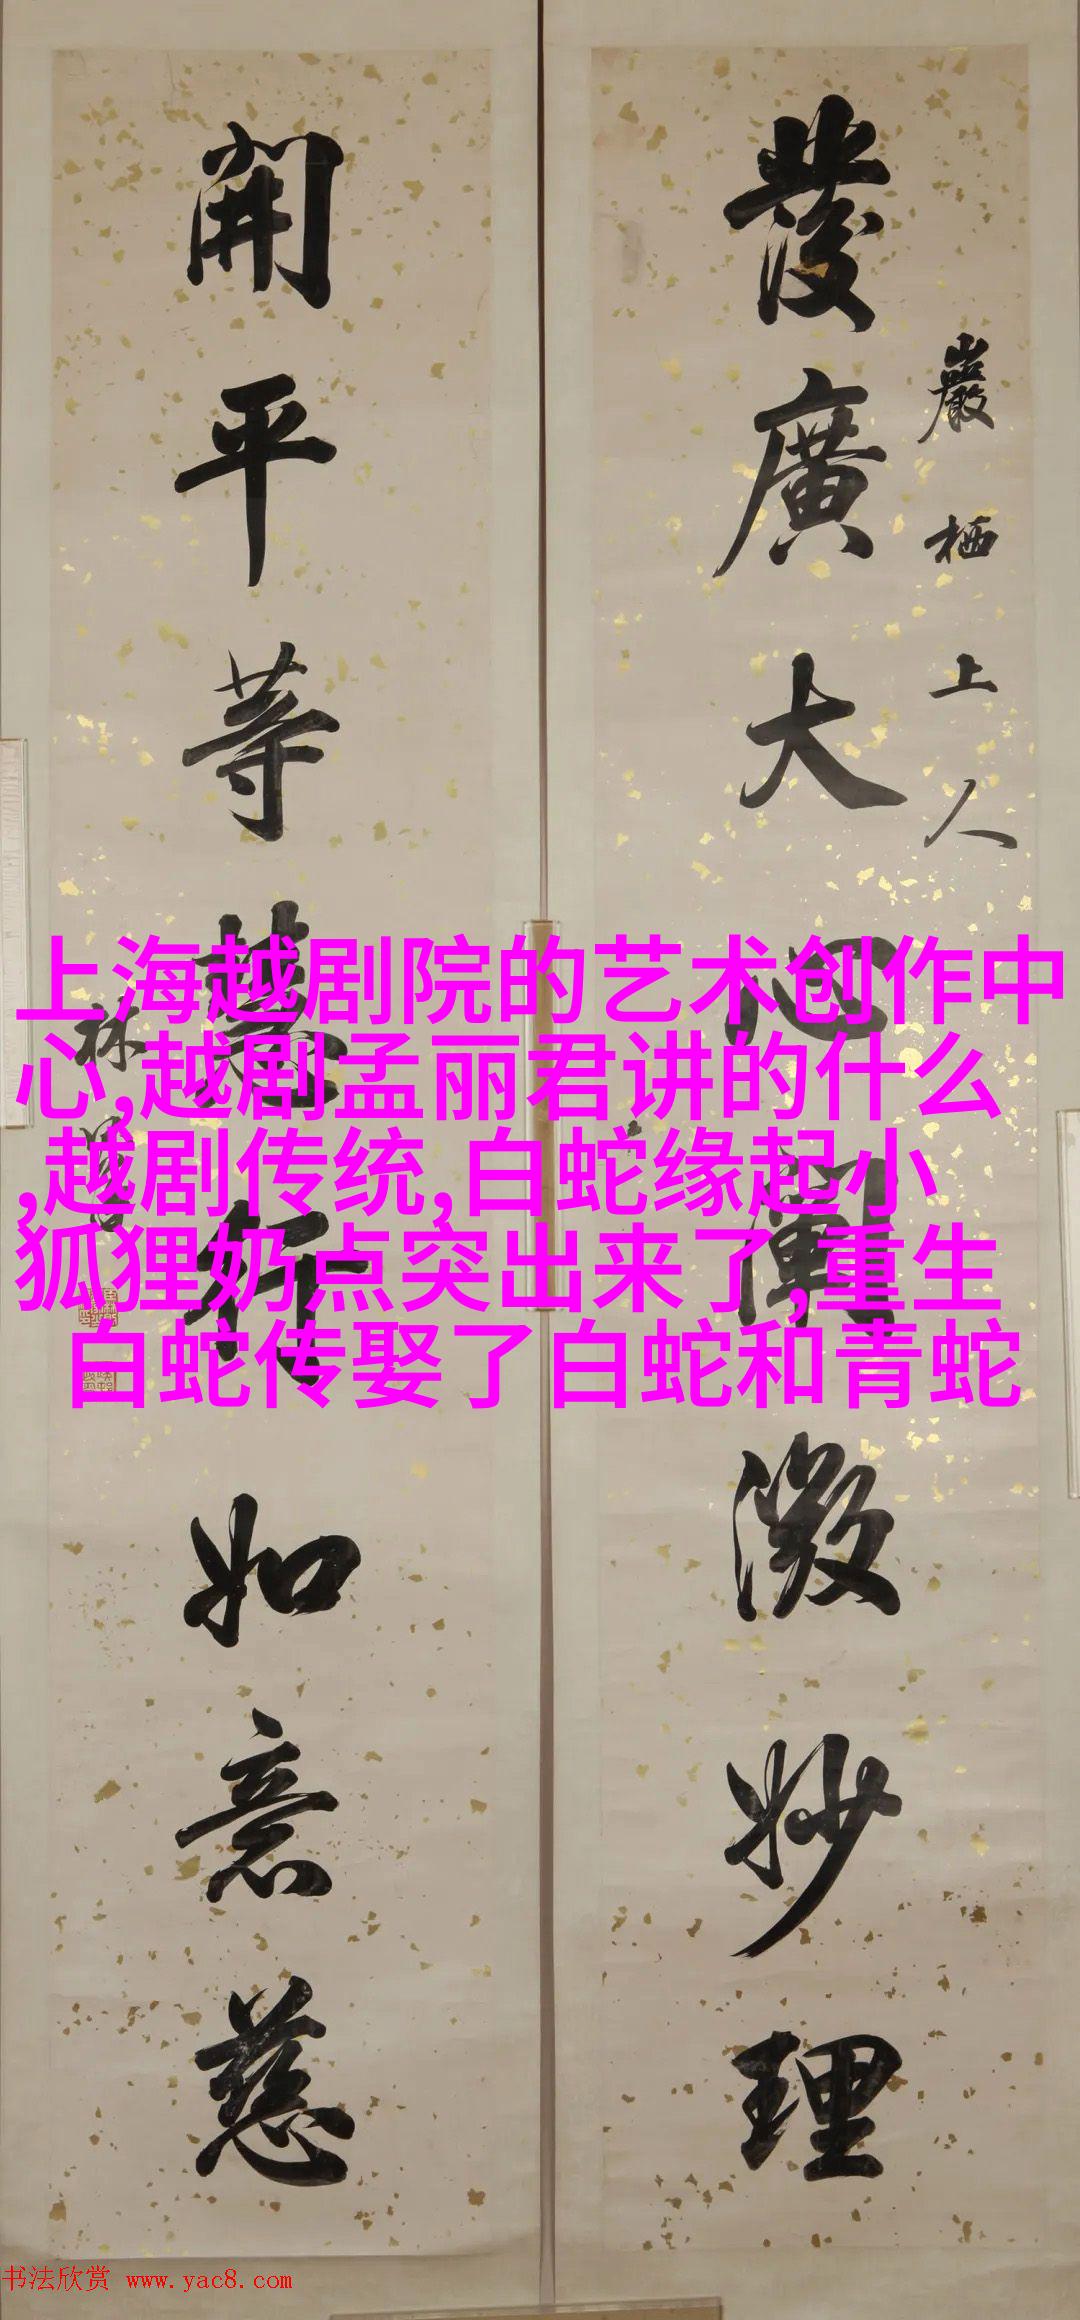 巖栖上人
發廣大心闡微妙理
開平等行如意慈
林
上海越剧院的艺术创作中
心,越剧孟丽君讲的什么
,越剧传统,白蛇缘起小
狐狸奶点突出来了,重生
白蛇传娶了白蛇和青蛇
书法欣赏 www.yac8.com